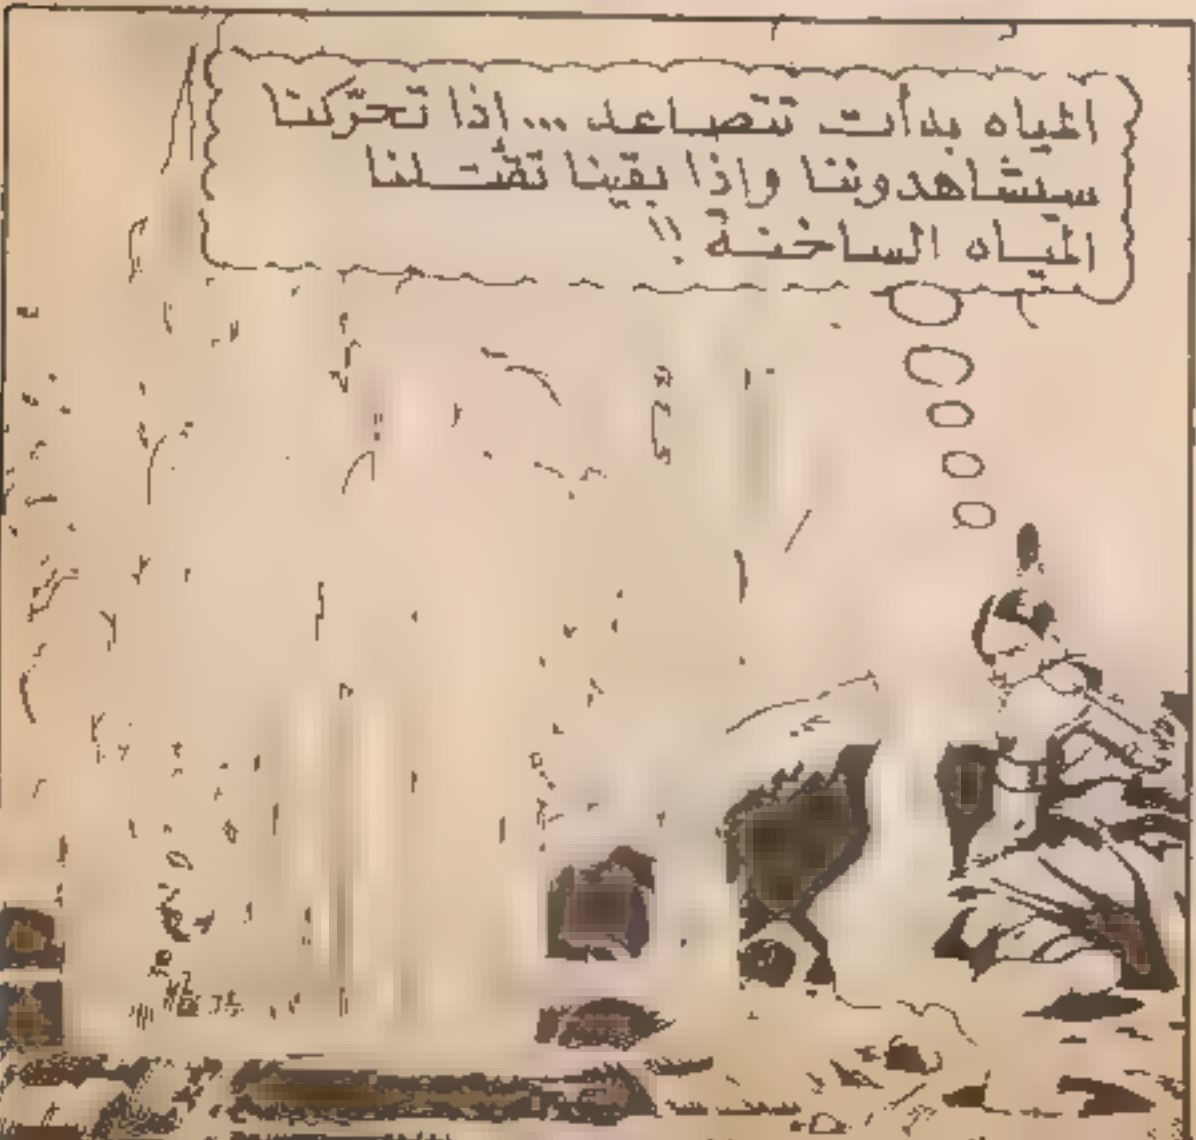 المياه بدأت تتصاعد ... إذا تحرّكنا
سيشاهدوننا وإذا بقينا تقتلنا
المياه الساخنة !!